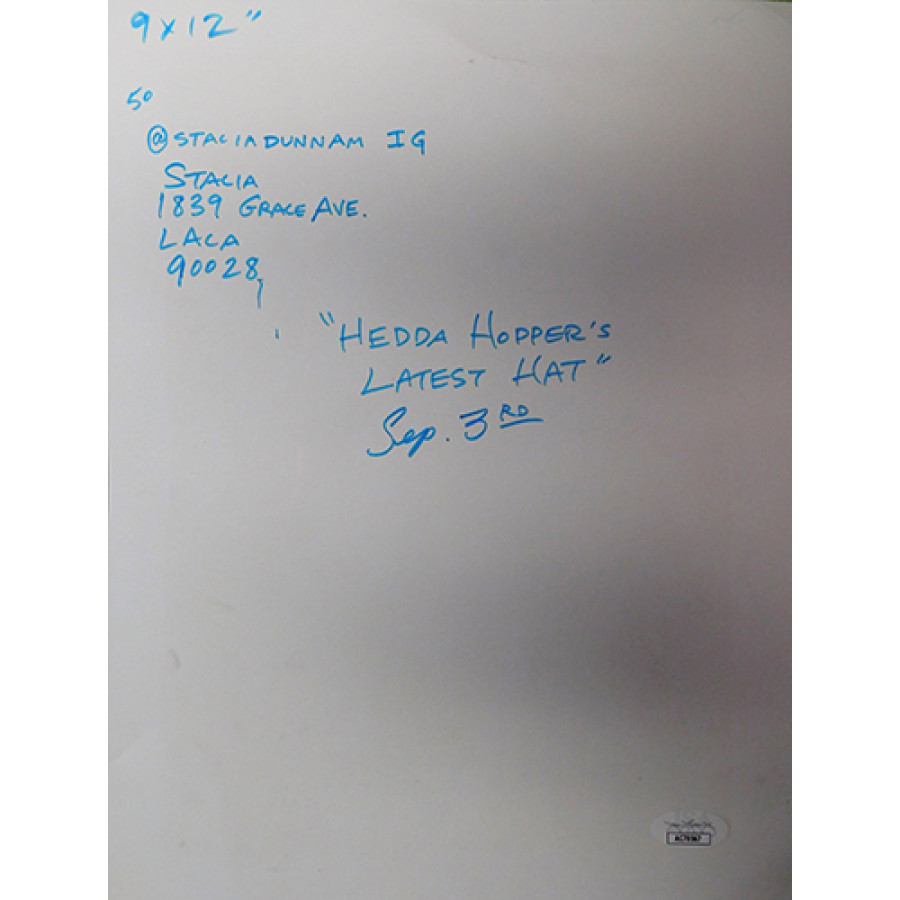 9 x 12"
50
@STACIADUNNAM IG
STACIA
1839 GRACE AVE.
LA CA
90028
"HEDDA HOPPER'S
LATEST HAT"
Sep. 3RD